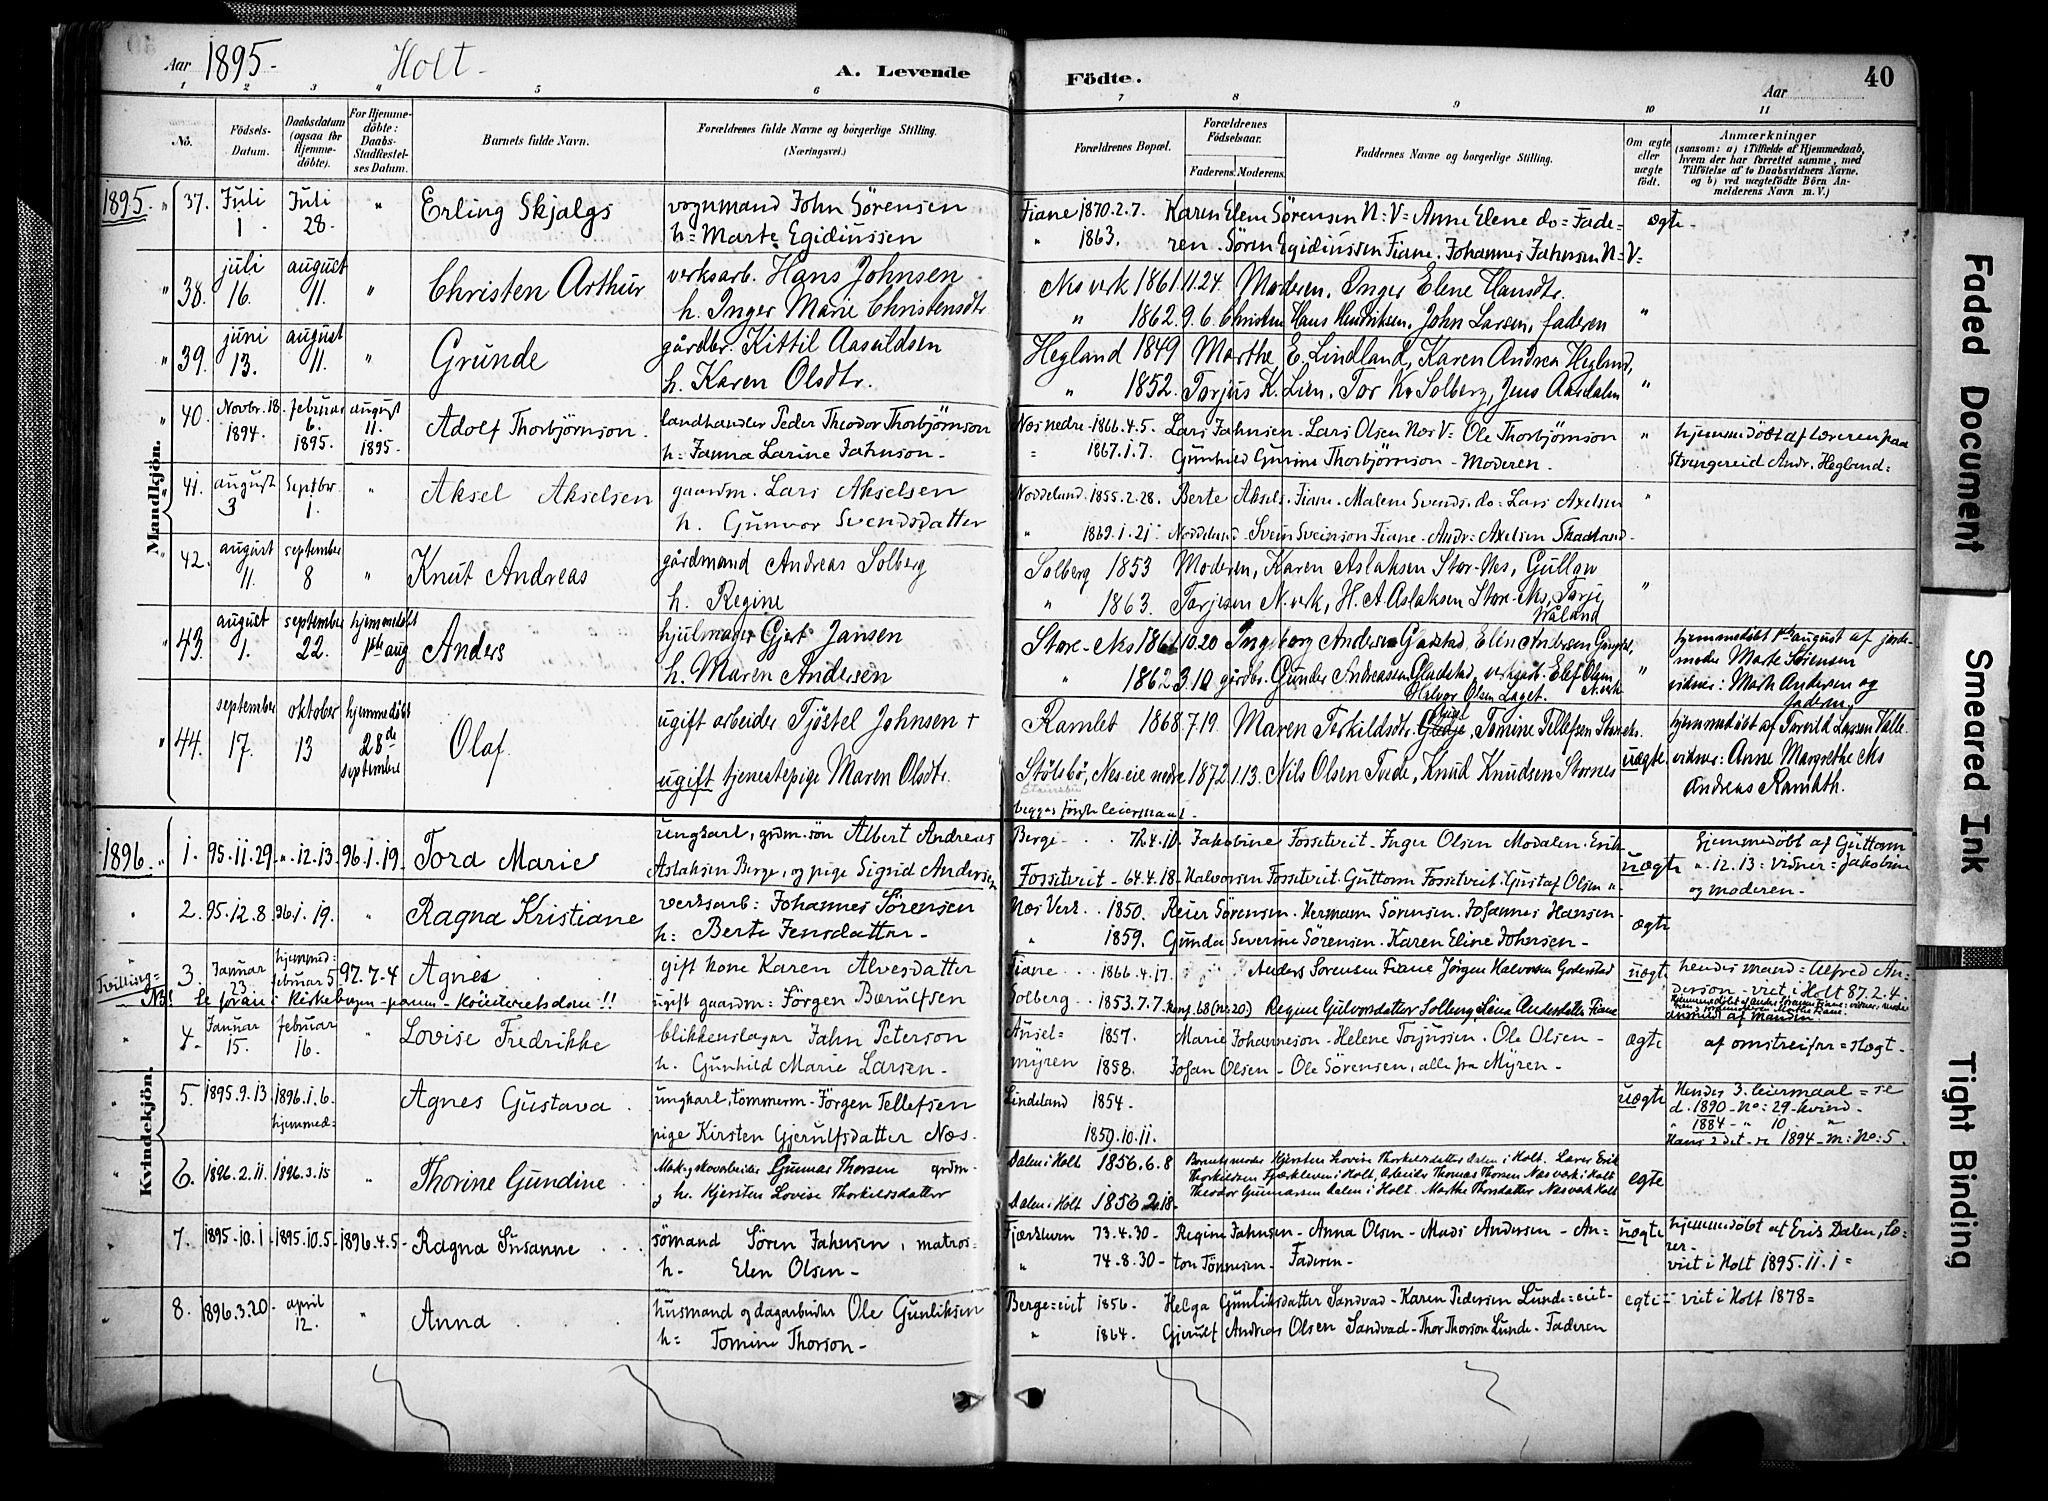 Aar 1895.
Holt.
A. Levende
Födte.
Aar
40
1 2 3 4 5 6 7 8 9 10 11
No.
Födsels-
Datum.
Daabsdatum
(ogsaa for
Hjemme-
döbte).
For Hjemme-
döbte:
Daabs-
Stadfæstel-
ses Datum.
Barnets fulde Navn.
Forældrenes fulde Navne og borgerlige Stilling.
(Næringsvei.)
Forældrenes Bopæl.
Forældrenes
Födselsaar.
Faderens. Moderens.
Faddernes Navne og borgerlige Stilling.
Om ægte
eller
uægte
født.
Anmærkninger
(saasom: a) i Tilfælde af Hjemmedaab,
hvem der har forrettet samme, med
Tilföielse af to Daabsvidners Navne.
og b) ved uægtefödte Börn An-
melderens Navn m. V.)
Mandkjön.
1895. " 37. Juli 1. Juli 28. " Erling Skjalgs vognmand John Sörensen Fiane 1870.2.7. Karen Elen Sörensen N:V= Anne Elene do= Fade- ægte.
h= Marte Egidiussen " 1863. ren. Sören Egidiussen Fiane. Johannes Jahnsen N=V=
" 38. juli 16. august 11. " Christen Arthur verksarb. Hans Johnsen Næs verk 1861.11.24. Moderen. Inger Elene Hansdtr.
h. Inger Marie Christensdtr " 1862.9.6. Christen Hans Hendriksen. John Larsen, faderen "
" 39. juni 13. august 11. " Grunde gårdbr. Kittil Aasuldsen Hegland 1849 Marthe E. Lindland, Karen Andrea Hegland,
h. Karen Olsdtr. " 1852. Torjus K. Lien. Tor K. Solberg, Jens Aasdalen "
" 40. Novbr. 18. 1894. februar 6. 1895. august 11. 1895. Adolf Thorbjörnson. landhandler Peder Theodor Thorbjörnson Næs nedre 1866.4.5. Lars Jahnsen. Lars Olsen Næs V= Ole Thorbjörnson " hjemmedöbt af læreren paa
h= Janna Larine Jahnson. = 1867.1.7. Gunhild Gurine Thorbjörnson - Moderen. Strengereid Andr. Hegland=
41. august 3 Septbr. 1. " Aksel Akselsen gaardm. Lars Akselsen Noddeland. 1855.2.28. Berte Aksels. Fiane. Malene Svends. do= Lars Axelsen "
h. Gunvor Svendsdatter " 1869.1.21. Noddeland. Svein Sveinson Fiane. Andr. Axelsen Skadland.
" 42. august 11. september 8 " Knut Andreas gårdmand Andreas Solberg Solberg 1853 Moderen, Karen Aslaksen Store-Næs, Gullow
h. Regine " 1863. Torjesen N. verk, H. A. Aslaksen Store-Næs, Torje Wåland "
" 43. august 1. september 22. hjemmedøbt 1ste aug Anders hjulmager Gjert Jansen Store-Næs 1861.10.20 Ingeborg Andersen Gjerstad, Elin Andersen hjemmedöbt 1ste august af jorde-
moder Marte Sörensen
h. Maren Andersen " 1862.3.10 gårdbr. Gunder Andreassen Gladstad, verksarb. Elef Olsen N. verk " vidner: Marte Andersen og
Halvor Olsen Laget. faderen
" 44. september 17. oktober 13 hjemmedöbt 28de septembre Olaf ugift arbeider Tjöstel Johnsen + Ramlet 1868.7.19 Maren Terkildsdtr. Tomine Tellefsen hjemmedöbt af Tarald Lassen Valle.
ugift tjenestepige Maren Olsdtr. Stölsbö, Næs eie nedre 1872.1.13. Nils Olsen Tvede, Knud Knudsen Stornes uægte. vidner: Anne Margrethe Næs
Andreas Ramleth.
begges förste leiermaal.
Kvindekjön.
1896. " 1. 95.11.29. ".12.13. 96.1.19. Tora Marie ungkarl, grdm. sön Albert Andreas Berge. 72.4.10. Jakobine Fosstveit. Inger Olsen Modalen. Erik hjemmedöbt af Guttorm
Aslaksen Berge, og pige Sigrid Andersen Fosstveit. 64.4.18. Halvorsen Fosstveit. Guttorm Fosstveit. Gustaf Olsen " uægte ".12.13= vidner= Jakobine
og moderen.
" 2. 95.12.8 96.1.19. " Ragna Kristiane verksarb: Johannes Sörensen Næs Verk. 1850. Reier Sörensen. Hermann Sörensen. Johannes Hansen.
h= Berte Jensdatter. " 1859. Gunda Severine Sörensen. Karen Eline Johnsen. ægte
Tvilling= 3. Januar 23. hjemmed. februar 5 97.7.4 Agnes gift kone Karen Alvesdatter Fiane 1866.4.17. Anders Sörensen Fiane Jörgen Halvorsen Goderstad uægt. hendes mand= Alfred An-
derson. viet i Holt 87.2.4.
NB! Se foran i Kirkebogen ugift gaardm: Jörgen Bærulfsen Solberg. 1853.7.7. konf. 68 (nr. 20.) Regine Gulvorsdatter Solberg. Lina Andersdatter Fiane
" 4. Januar 15. februar 16. " Lovise Fredrikke blikkenslager Jahn Peterson Ausel- 1857. Marie Johanneson. Helene Torjussen. Ole Olsen. ægte af omstreifer=slægt.
h. Gunhild Marie Larsen. myren 1858. Johan Olsen. Ole Sörensen, alle fra Myren.
" 5. 1895.9.13 1896.1.6. hjemmed= Agnes Gustava. ungkarl, tömmerm. Jörgen Tellefsen Lindeland 1854. uægte Hendes 3. leiermaal = se
d. 1890. No: 29. kvind.
" 1884 - " 10 "
pige Kirsten Gjerulfsdatter Næs. 1859.10.11. Hans 2det. se 1894. m: No: 5.
" 6. 1896.2.11. 1896.3.15 " Thorine Gundine Gunnar Thorsen grdm. Dalen i Holt 1856.6.8 Barnets moder Kjersten Lovise Thorkildsdatter Dalen i Holt. Lærer Erik
Thorkildsen Fjærkleiven i Holt, Arbeider Thomas Thorsen Næsverk i Holt egte
og h. Kjersten Lovise Thorkildsdatter Dalen i Holt 1856.2.18. Theodor Gunnarsen Dalen i Holt. Marthe Thorsdatter Næsværk Holt
7. 1895.10.1. 1895.10.5. 1896.4.5. Ragna Susanne sömand Sören Jahnsen, matros= 73.4.30. Regine Jahnsen. Anna Olsen. Mads Andersen. An= uægte hjemmedöbt af Erik Dalen, læ-
rer.
h. Elen Olsen. " 74.8.30. ton Tönnesen. Faderen. viet i Holt 1895.11.1=
" 8. 1896.3.20. april 12. " Anna husmand og dagarbeider Ole Gunliksen Berge=eiet 1856. Helga Gunliksdatter Sandvad. Karen Pedersen Lunde=eiet. egte= viet i Holt 1878=
h= Tomine Thorson. " 1864. Gjerulf Andreas Olsen Sandvad. Thor Thorson Lunde. Faderen
Faded Document
Smeared Ink
Tight Binding